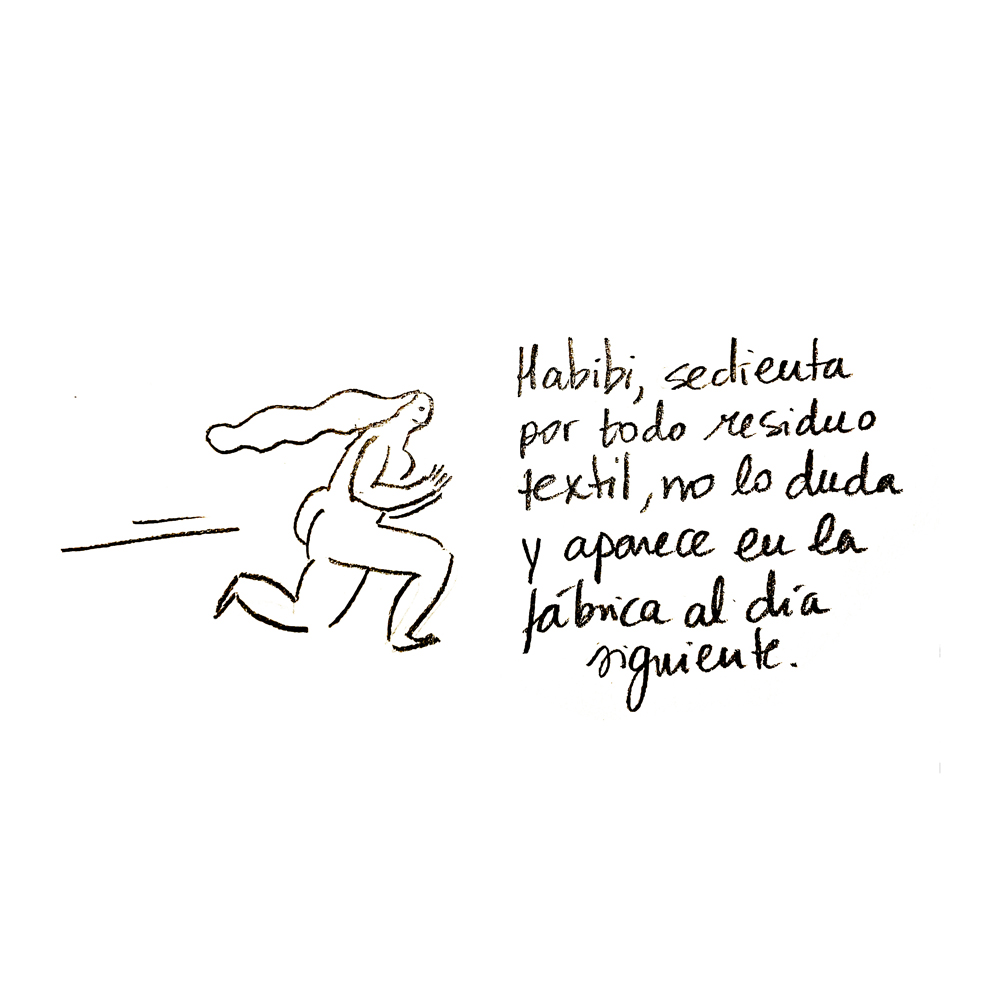 Habibi, sedienta
por todo residuo
textil, no lo duda
y aparece en la
fábrica al día
siguiente.